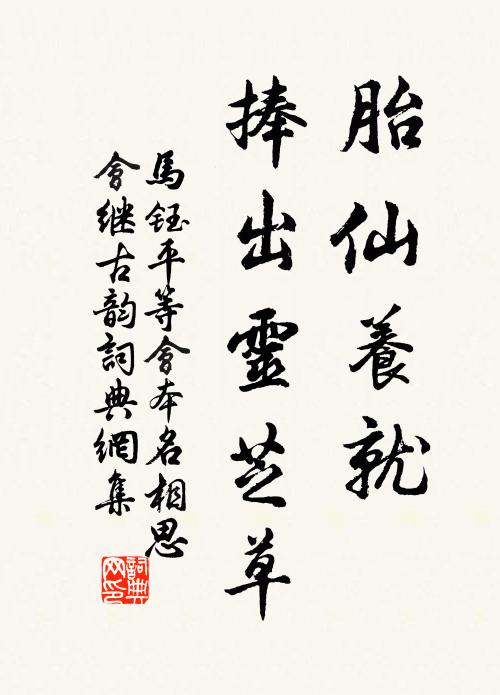 胎仙養就
捧出靈芝草
馬鈺平等會本名相思
會继古韵詞典網集
詞典网印